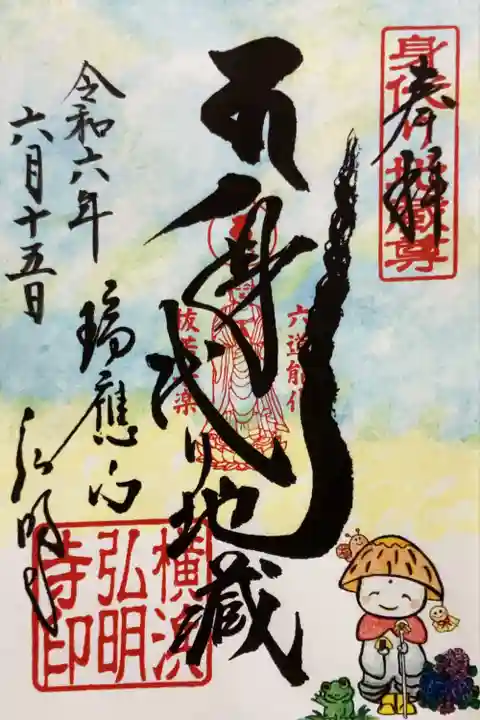 奉拝
身代り地蔵尊
身代り地蔵
六道能化
抜苦与楽
令和六年
六月十五日
瑞應山
弘明寺
横濱
弘明
寺印